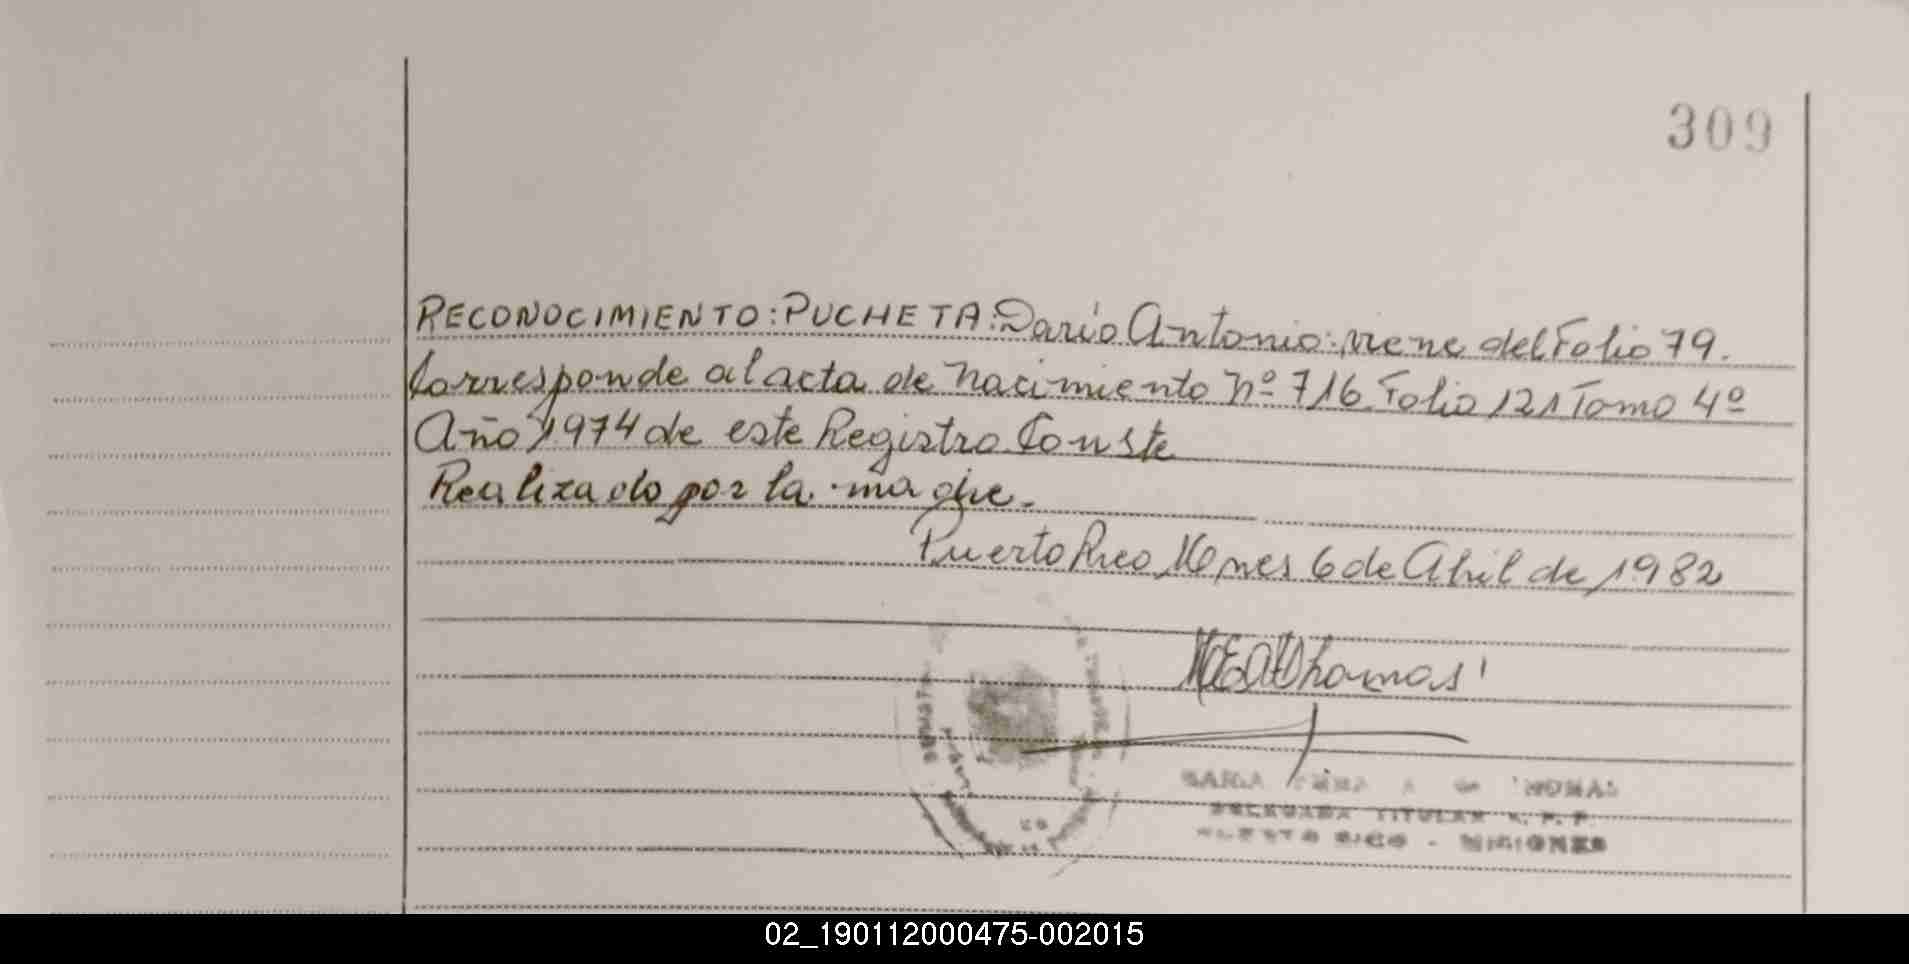 309
RECONOCIMIENTO: PUCHETA: Dario Antonio: viene del Folio 79.
Corresponde al acta de Nacimiento Nº 716 Folio 121 Tomo 4º
Año 1974 de este Registro Conste
Realizado por la madre.
Puerto Rico Mnes 6 de Abril de 1982
Thomas
MARIA THOMAS
DELEGADA TITULAR R. P. P.
PUERTO RICO - MISIONES
02_190112000475-002015